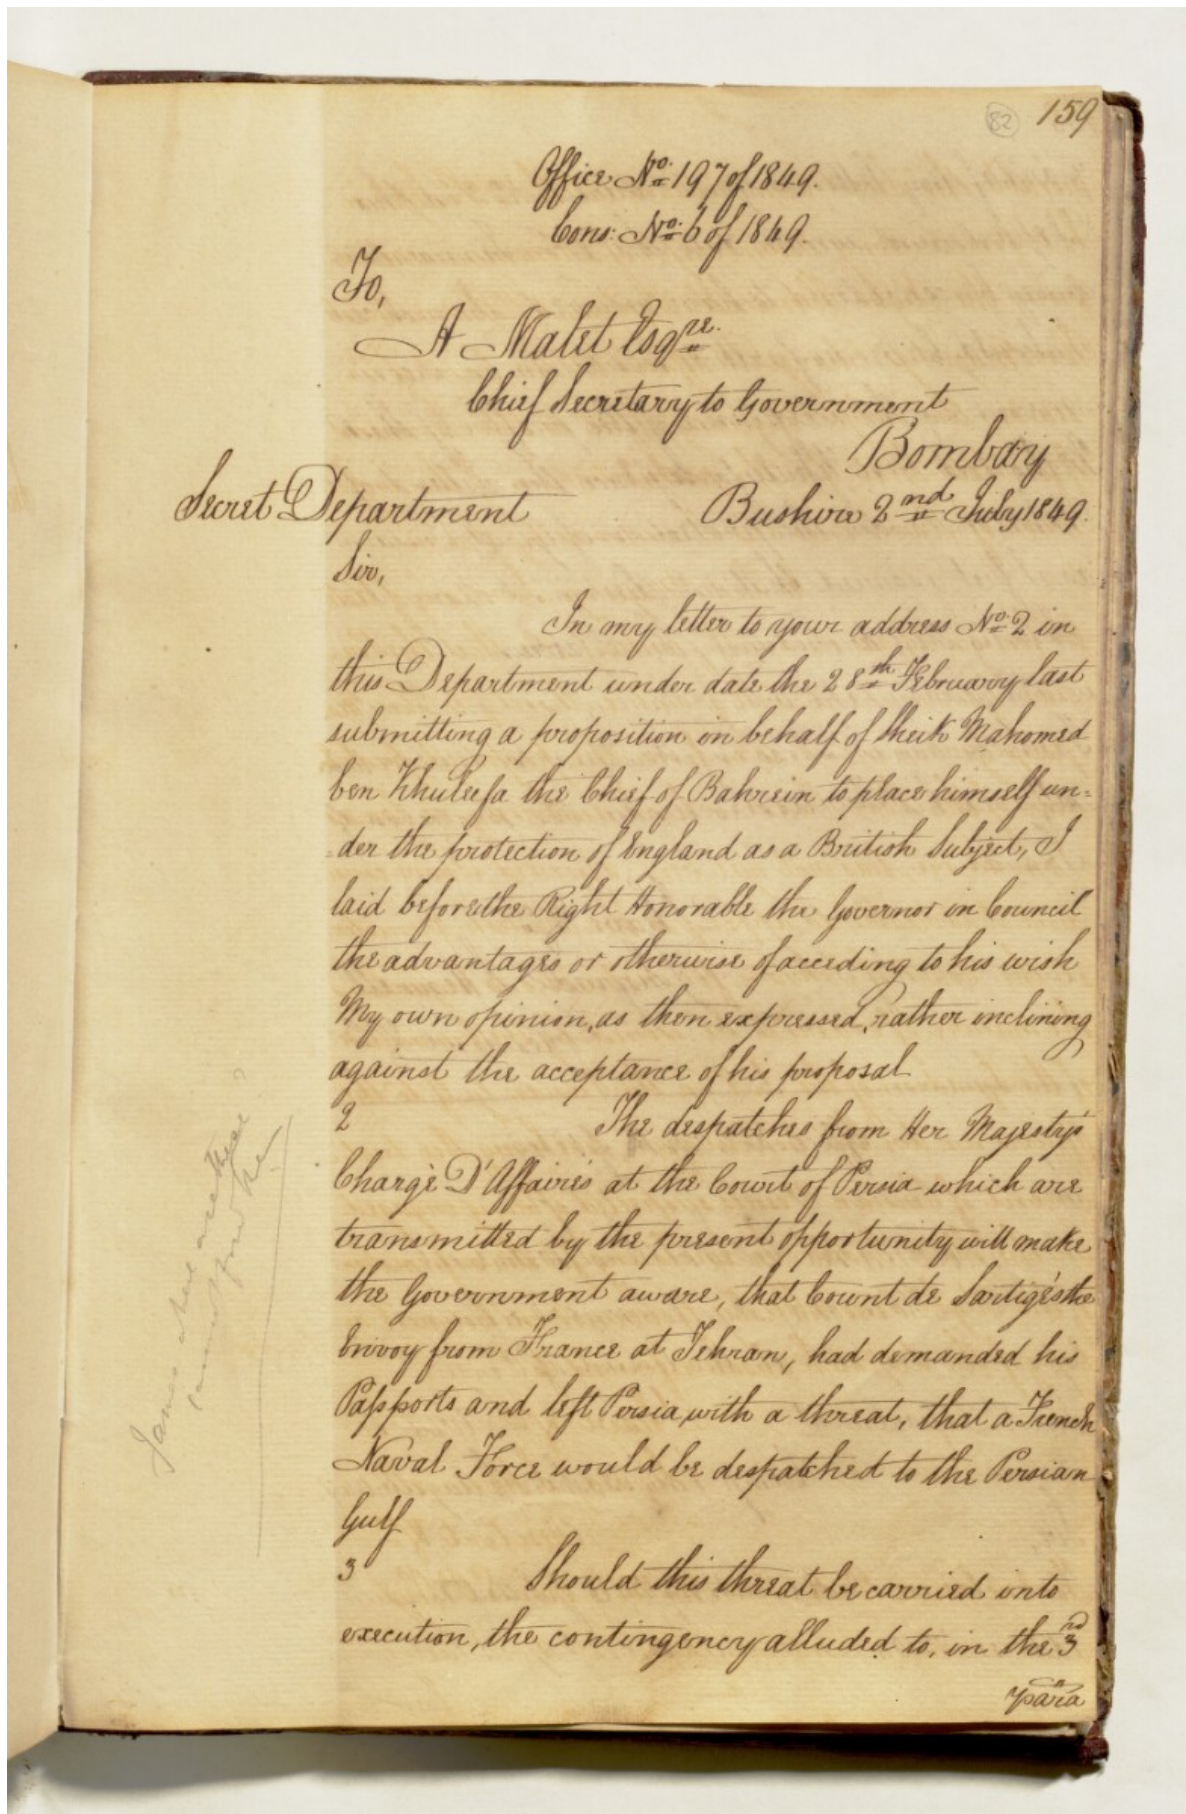 82
159
Office No. 197 of 1849.
Cons: No. 6 of 1849.
To,
A Malet Esqre.
Chief Secretary to Government
Bombay
Secret Department
Bushire 2nd July 1849.
Sir,
In my letter to your address No. 2 in
this Department under date the 28th February last
submitting a proposition on behalf of Sheik Mahomed
ben Khuleefa the Chief of Bahrein to place himself un=
=der the protection of England as a British Subject, I
laid before the Right Honorable the Governor in Council
the advantages or otherwise of acceding to his wish
My own opinion, as then expressed, rather inclining
against the acceptance of his proposal
2 The despatches from Her Majesty's
Chargé D'Affairés at the Court of Persia which are
transmitted by the present opportunity will make
the Government aware, that Count de Sartigés the
Envoy from France at Tehran, had demanded his
Passports and left Persia, with a threat, that a French
Naval Force would be despatched to the Persian
Gulf
3 Should this threat be carried into
execution, the contingency alluded to, in the 3rd
para